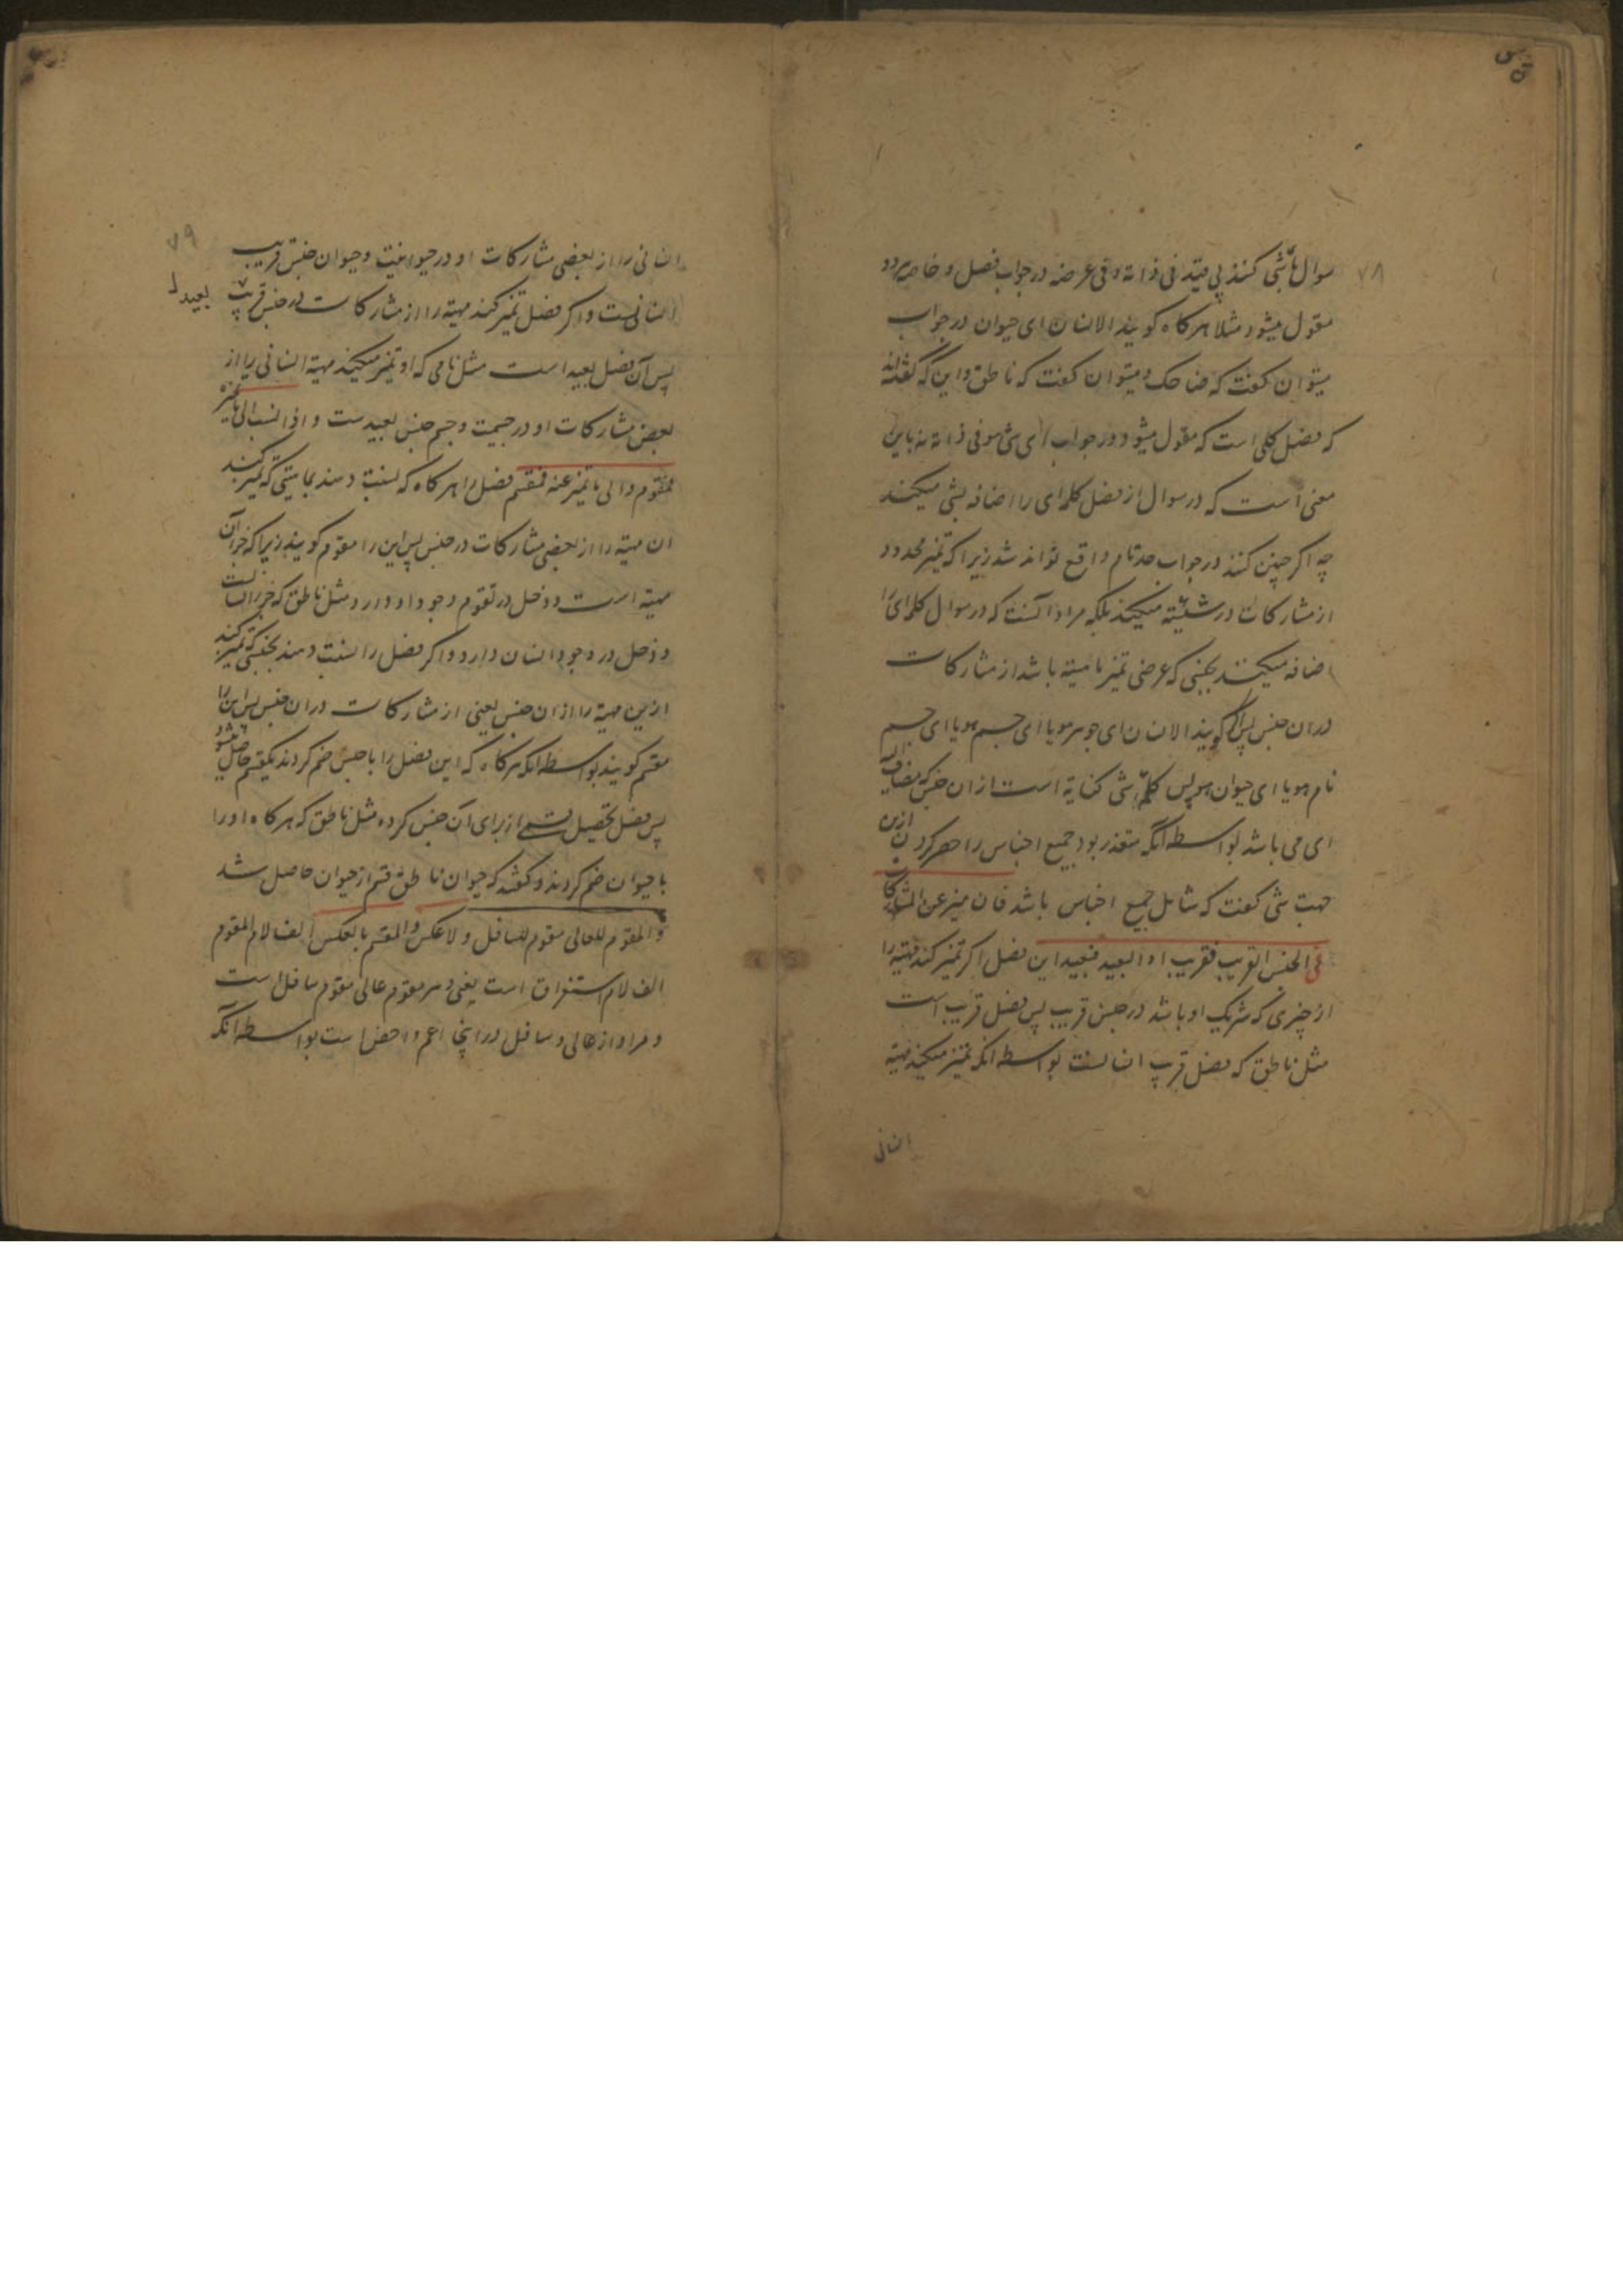 ۷۸
سوال بای شی کنند بی قید فی ذاته و فی عرضه در جواب فصل و خاصه هر دو
مقول میشود مثلا هرکاه کویند الانسان ای حیوان در جواب
میتوان کفت که ضاحک و میتوان کفت که ناطق و این که کفته‌اند
که فصل کلی است که مقول میشود در جواب ای شی هو فی ذاته نه باین
معنی است که در سوال از فصل کلمه ای را اضافه بشی میکنند
چه اکر چنین کنند در جواب حد تام واقع تواند شد زیرا که تمیز محدود
از مشارکات در شیئیته میکند بلکه مراد آنست که در سوال کلمه ای را
اضافه میکنند بجنسی که عرضی تمیز ماهیته باشد از مشارکات
در ان جنس پس اکر کویند الانسان ای جوهر هو یا ای جسم هو یا ای جسم
نام هو یا ای حیوان هو پس کلمه شی کنایة است از ان جنس که مضاف الیه
ای می باشد بواسطه آنکه متعذر بود جمیع اجناس را حصر کردن ازین
جهت شی کفت که شامل جمیع اجناس باشد فان میز عن المشارکات
فی الجنس القریب فقریب او البعید فبعید این فصل اکر تمیز کند مهیته را
از چیزی که شریک او باشد در جنس قریب پس فصل قریب است
مثل ناطق که فصل قریب انسانست بواسطه انکه تمیز میکند مهیته
انسانی
۷۹
انسانی را از بعضی مشارکات او در حیوانیت و حیوان جنس قریب
انسانیست و اکر فصل تمیز کند مهیته را از مشارکات در جنس قریب
بعید
پس آن فصل بعید است مثل نامی که او تمیز میکند مهیته انسانی را از
بعض مشارکات او در جسمیت و جسم جنس بعیدست و اذا نسب الی ما یمیزه
فمقوم و الی ما تمیز عنه فمقسم فصل را هرکاه که نسبت دهند بماهیتی که تمیز کند
ان مهیته را از بعضی مشارکات در جنس پس این را مقوم کویند زیرا که جزء آن
مهیته است و دخل در تقوم وجود او دارد مثل ناطق که جزء انسانست
و دخل در وجود انسان دارد و اکر فصل را نسبت دهند بجنسی که تمیز کند
ازین مهیته را از ان جنس یعنی از مشارکات در ان جنس پس این را
مقسم کویند بواسطه انکه هرکاه که این فصل را با جنس ضم کردند یکقسم حاصل میشود
پس فصل تحصیل قسمی از برای آن جنس کرده مثل ناطق که هرکاه او را
با حیوان ضم کردند و کفتند که حیوان ناطق قسم از حیوان حاصل شد
و المقوم للعالی مقوم للسافل و لا عکس و المقسم بالعکس الف لام المقوم
الف لام استغراق است یعنی هر مقوم عالی مقوم سافل است
و مراد از عالی و سافل در اینجا اعم و اخص است بواسطه آنکه